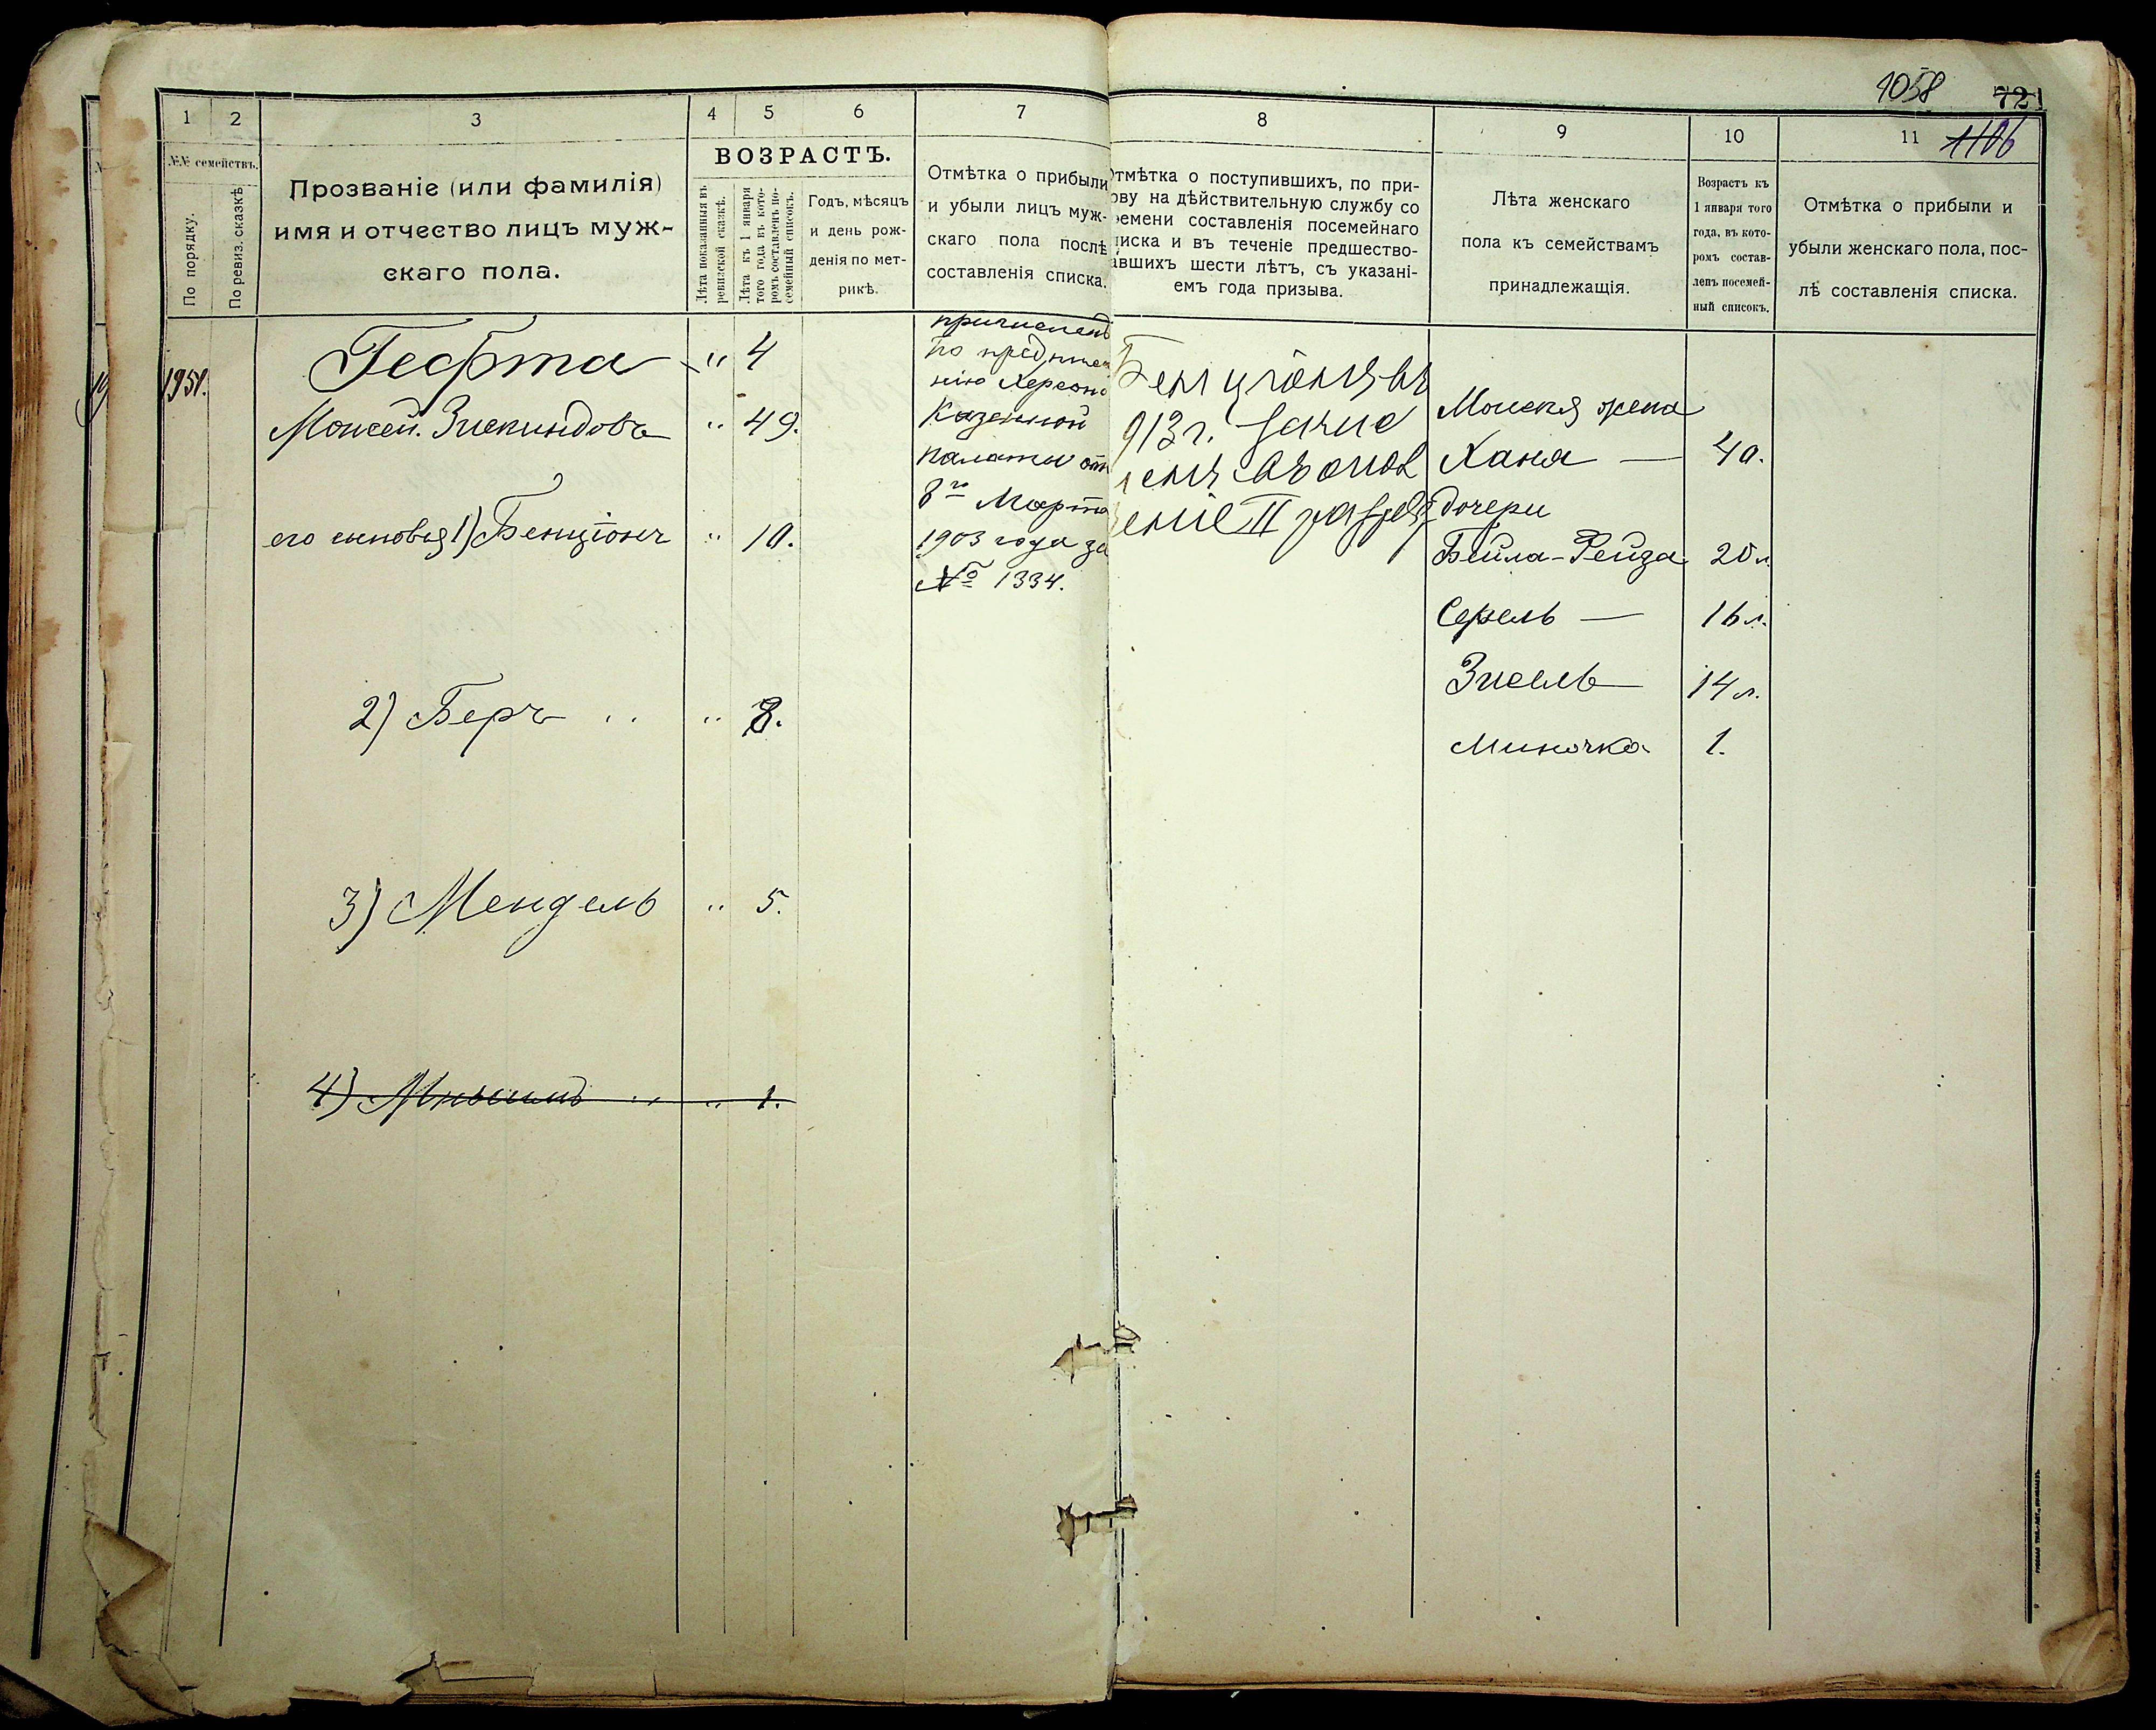 1058 72
1106
1 2 3 4 5 6 7
№№ семействъ.
По порядку.
По ревиз. сказкѣ
Прозваніе (или фамилія)
имя и отчество лицъ муж-
скаго пола.
ВОЗРАСТЪ.
Лѣта показанныя въ
ревизской сказкѣ.
Лѣта къ 1 января
того года въ кото-
ромъ составленъ по-
семейный списокъ.
Годъ, мѣсяцъ
и день рож-
денія по мет-
рикѣ.
Отмѣтка о прибыли
и убыли лицъ муж-
скаго пола послѣ
составленія списка.
8 9 10 11
Отмѣтка о поступившихъ, по при-
ову на дѣйствительную службу со
ремени составленія посемейнаго
писка и въ теченіе предшество-
авшихъ шести лѣтъ, съ указані-
емъ года призыва.
Лѣта женскаго
пола къ семействамъ
принадлежащія.
Возрастъ къ
1 января того
года, въ кото-
ромъ состав-
ленъ посемей-
ный списокъ.
Отмѣтка о прибыли и
убыли женскаго пола, пос-
лѣ составленія списка.
1951.
Гефта " 4
Моисей Зискиндовъ " 49.
его сыновья 1) Бенціонъ " 10.
2) Беръ " " 8.
3) Мендель " 5.
4) " " 1.
причисленъ
по предписа
нію Херсонс
Казенной
палаты отъ
8го Марта
1903 года за
№ 1334.
Бенціонъ въ
913 г. зачис
ленъ въ опол
ченіе II разряда
Моисея жена
Хана — 40.
дочери
Бейла-Рейза 20 л.
Серель — 16 л.
Зисель 14 л.
Миночка 1.